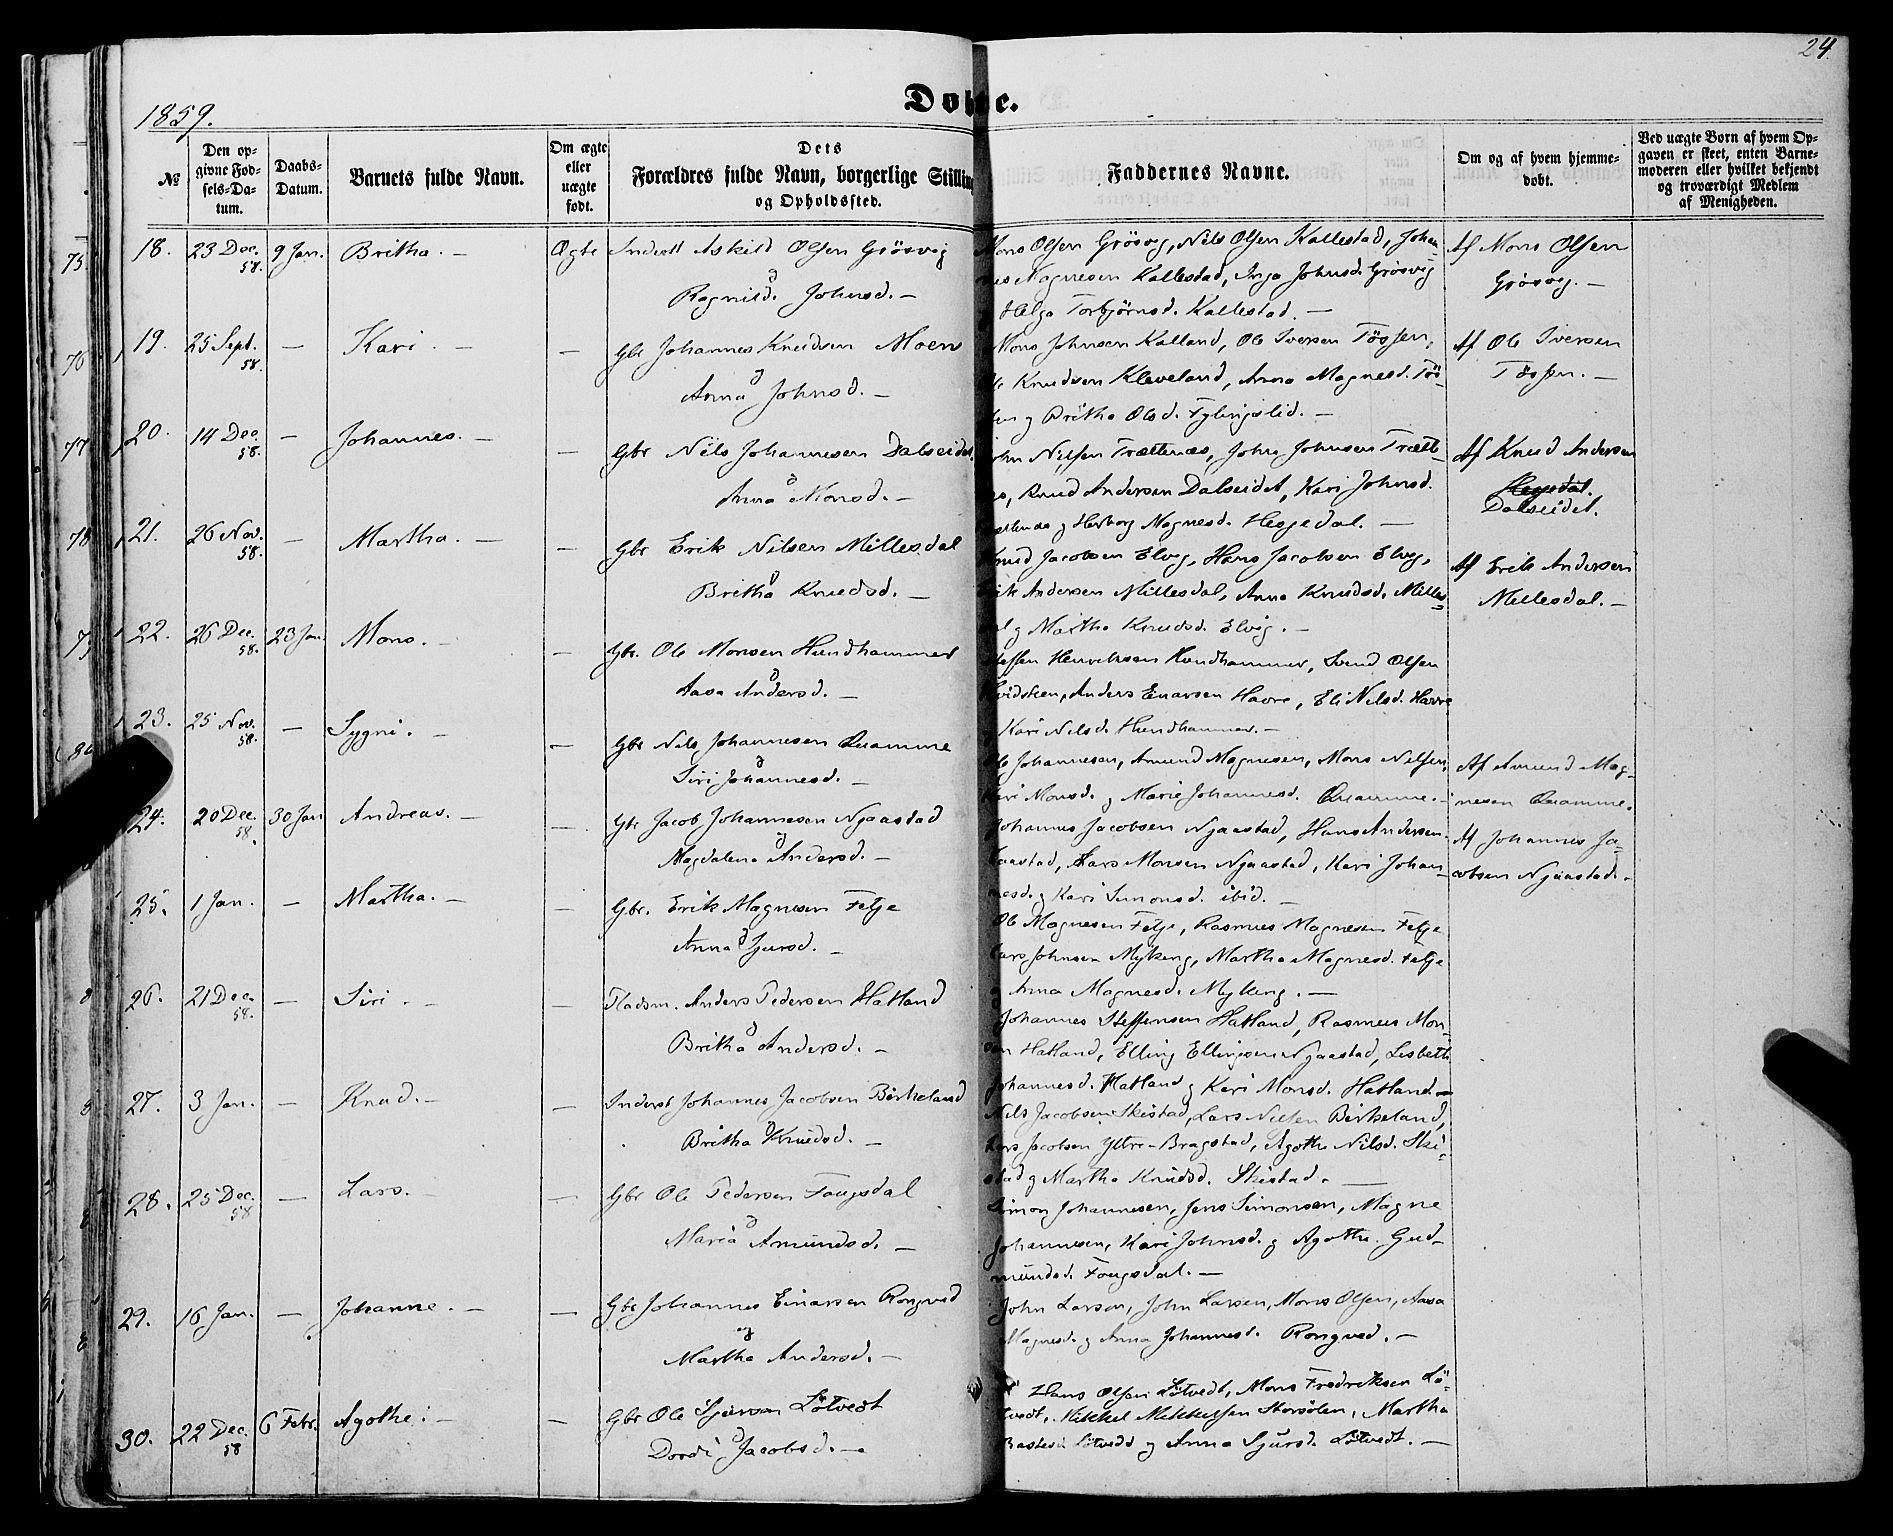 24.
Døbte.
1859.
№
Den opgivne Fødsels-Datum.
Daabs-Datum.
Barnets fulde Navn.
Om ægte eller uægte født.
Dets Forældres fulde Navn, borgerlige Stilling og Opholdssted.
Faddernes Navne.
Om og af hvem hjemmedøbt.
Ved uægte Børn af hvem Opgaven er skeet, enten Barnemoderen eller hvilket bekjendt og troværdigt Medlem af Menigheden.
18. 23 Dec. 58. 9 Jan. Britha. — Ægte Inderst Askild Olsen Grösvig
og
Ragnild Johnsd. —
Mons Olsen Grösvig, Nils Olsen Kallestad, Johan-
nes Magnesen Kallestad, Inga Johnsd. Grösvig
Helga Torbjörnsd. Kallestad. —
Af Mons Olsen
Grösvig. —
19. 25 Sept. 58. — Kari. — — Gbr Johannes Knudsen Moen
og
Anna Johnsd. —
Mons Johnsen Kalland, Ole Iversen Tössen,
Ole Knudsen Kleveland, Anna Magnesd. Tös-
sen og Britha Olsd. Fyllingslid. —
Af Ole Iversen
Tössen. —
20. 14 Dec. 58. — Johannes. — Gbr Nils Johannesen Dalseidet
og
Anna Monsd. —
John Nilsen Trættenes, John Johnsen Trætt-
es, Knud Andersen Dalseidet, Kari Johnsd.
Trættenes og Herborg Magnesd. Hesjedal. —
Af Knud Andersen
Dalseidet.
21. 26 Nov. 58. — Martha. — — Gbr Erik Nilsen Millesdal
og
Britha Knudsd. —
Knud Jacobsen Elvig, Hans Jacobsen Elvig,
Erik Andersen Millesdal, Anna Knudsd. Milles-
dal og Martha Knudsd. Elvig. —
Af Erik Andersen
Millesdal. —
22. 26 Dec. 58. 23 Jan Mons. — — Gbr. Ole Monsen Hundhammer
og
Aasa Andersd. —
Steffen Henriksen Hundhammer, Svend Olsen
Hvidsteen, Anders Einarsen Havre, Eli Nilsd. Havre
Kari Nilsd. Hundhammer. —
23. 25 Nov. 58. — Sygni. — — Gbr Nils Johannesen Quamme
og
Siri Johannesd. —
Ole Johannesen, Amund Magnesen, Mons Nilsen,
Kari Monsd. og Marie Johannesd. Quamme. —
Af Amund Mag-
nesen Quamme.
24. 20 Dec. 58. 30 Jan Andreas. — — Gbr Jacob Johannesen Njaastad
og
Magdalena Andersd. —
Johannes Jacobsen Njaastad, Hans Andersen
Njaastad, Lars Monsen Njaastad, Kari Johan-
nesd. og Kari Simonsd. ibid. —
Af Johannes Ja-
cobsen Njaastad. —
25. 1 Jan. — Martha. — — Gbr. Erik Magnesen Fetje
og
Anna Sjursd. —
Ole Magnesen Fetje, Rasmus Magnesen Fetje
Lars Johnsen Myking, Martha Magnesd. Fetje
og Anna Magnesd. Myking. —
26. 21 Dec. 58. — Siri. — — Pladsm. Anders Pedersen Hatland
og
Britha Andersd. —
Johannes Steffensen Hatland, Rasmus Mon-
sen Hatland, Elling Ellingsen Njaastad, Lisbeth
Johannesd. Hatland og Kari Monsd. Hatland. —
27. 3 Jan. — Knud. — — Inderst Johannes Jacobsen Birkeland
og
Britha Knudsd. —
Nils Jacobsen Skistad, Lars Nilsen Birkeland,
Lars Jacobsen Yttre-Bragstad, Agothe Nilsd. Ski-
stad og Martha Knudsd. Skistad. —
28. 25 Dec. 58 — Lars. — — Gbr Ole Pedersen Fougsdal
og
Maria Amundsd. —
Simon Johannesen, Jens Simonsen, Magne
Johannesen, Kari Johnsd. og Agothe Gud-
mundsd. Fougsdal. —
29. 16 Jan. — Johanne. — — Gbr Johannes Einarsen Rongved
og
Martha Andersd. —
John Larsen, John Larsen, Mons Olsen, Aasa
Magnesd. og Anna Johannesd. Rongved. —
30. 22 Dec. 58 6 Febr. Agothe. — — Gbr Ole Sjursen Lötvedt
og
Dordi Jacobsd. —
Hans Olsen Lötvedt, Mons Fredriksen Lö-
tvedt, Mikkel Mikkelsen Storsölen, Martha
Lötvedt og Anna Sjursd. Lötvedt. —